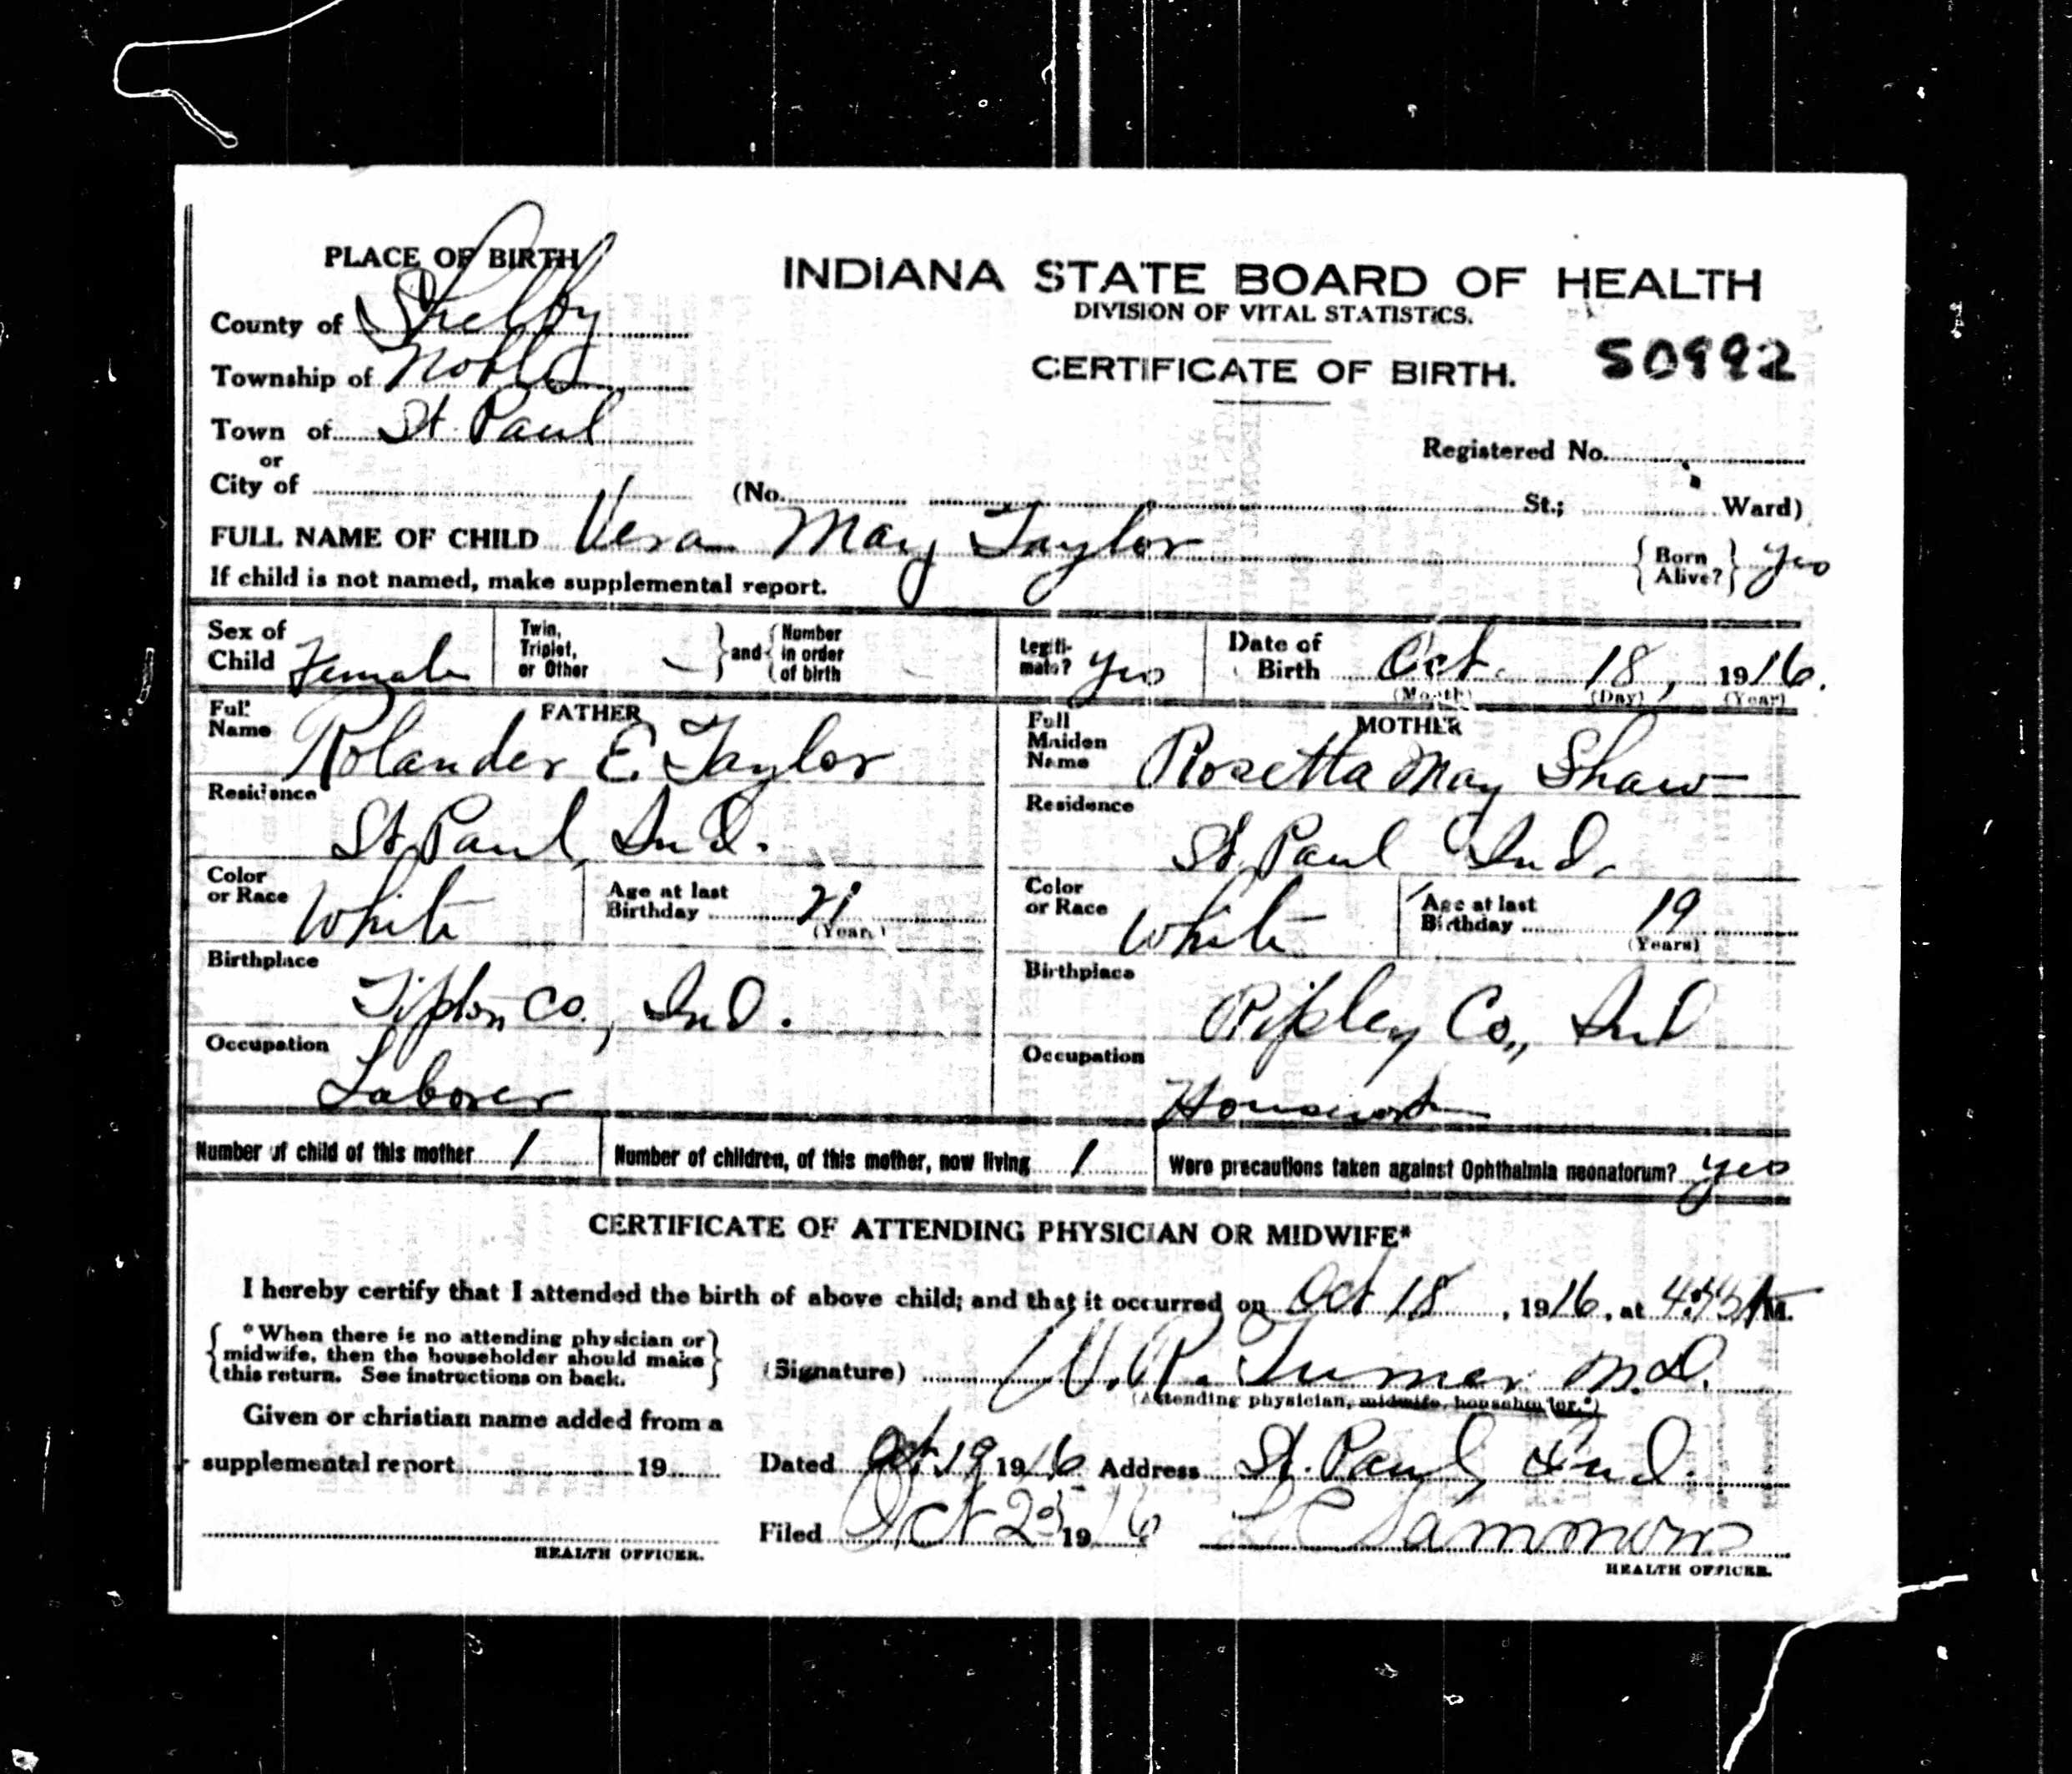 PLACE OF BIRTH
INDIANA STATE BOARD OF HEALTH
DIVISION OF VITAL STATISTICS.
CERTIFICATE OF BIRTH. 50992
County of Shelby
Township of Noble
Town of St. Paul
or
City of
Registered No.
(No. St.; Ward)
FULL NAME OF CHILD Vera May Taylor
{ Born Alive? } yes
If child is not named, make supplemental report.
Sex of Child Female
Twin, Triplet, or Other } and { Number in order of birth
Legiti-mate? yes
Date of Birth Oct. 18, 1916.
(Month) (Day) (Year)
FATHER
Full Name Rolander E. Taylor
Residence St. Paul, Ind.
Color or Race White
Age at last Birthday 21
(Years)
Birthplace Tipton Co., Ind.
Occupation Laborer
MOTHER
Full Maiden Name Rosetta May Shaw
Residence St. Paul Ind.
Color or Race White
Age at last Birthday 19
(Years)
Birthplace Ripley Co., Ind
Occupation Housework
Number of child of this mother 1
Number of children, of this mother, now living 1
Were precautions taken against Ophthalmia neonatorum? yes
CERTIFICATE OF ATTENDING PHYSICIAN OR MIDWIFE*
I hereby certify that I attended the birth of above child; and that it occurred on Oct 18, 1916, at M.
{ *When there is no attending physician or
midwife, then the householder should make
this return. See instructions on back. }
(Signature) R. Turner M.D.
(Attending physician, midwife, householder.*)
Given or christian name added from a
supplemental report 19
Dated Oct 19 1916 Address St. Paul, Ind.
Filed Oct 1916 Sammons
HEALTH OFFICER.
HEALTH OFFICER.